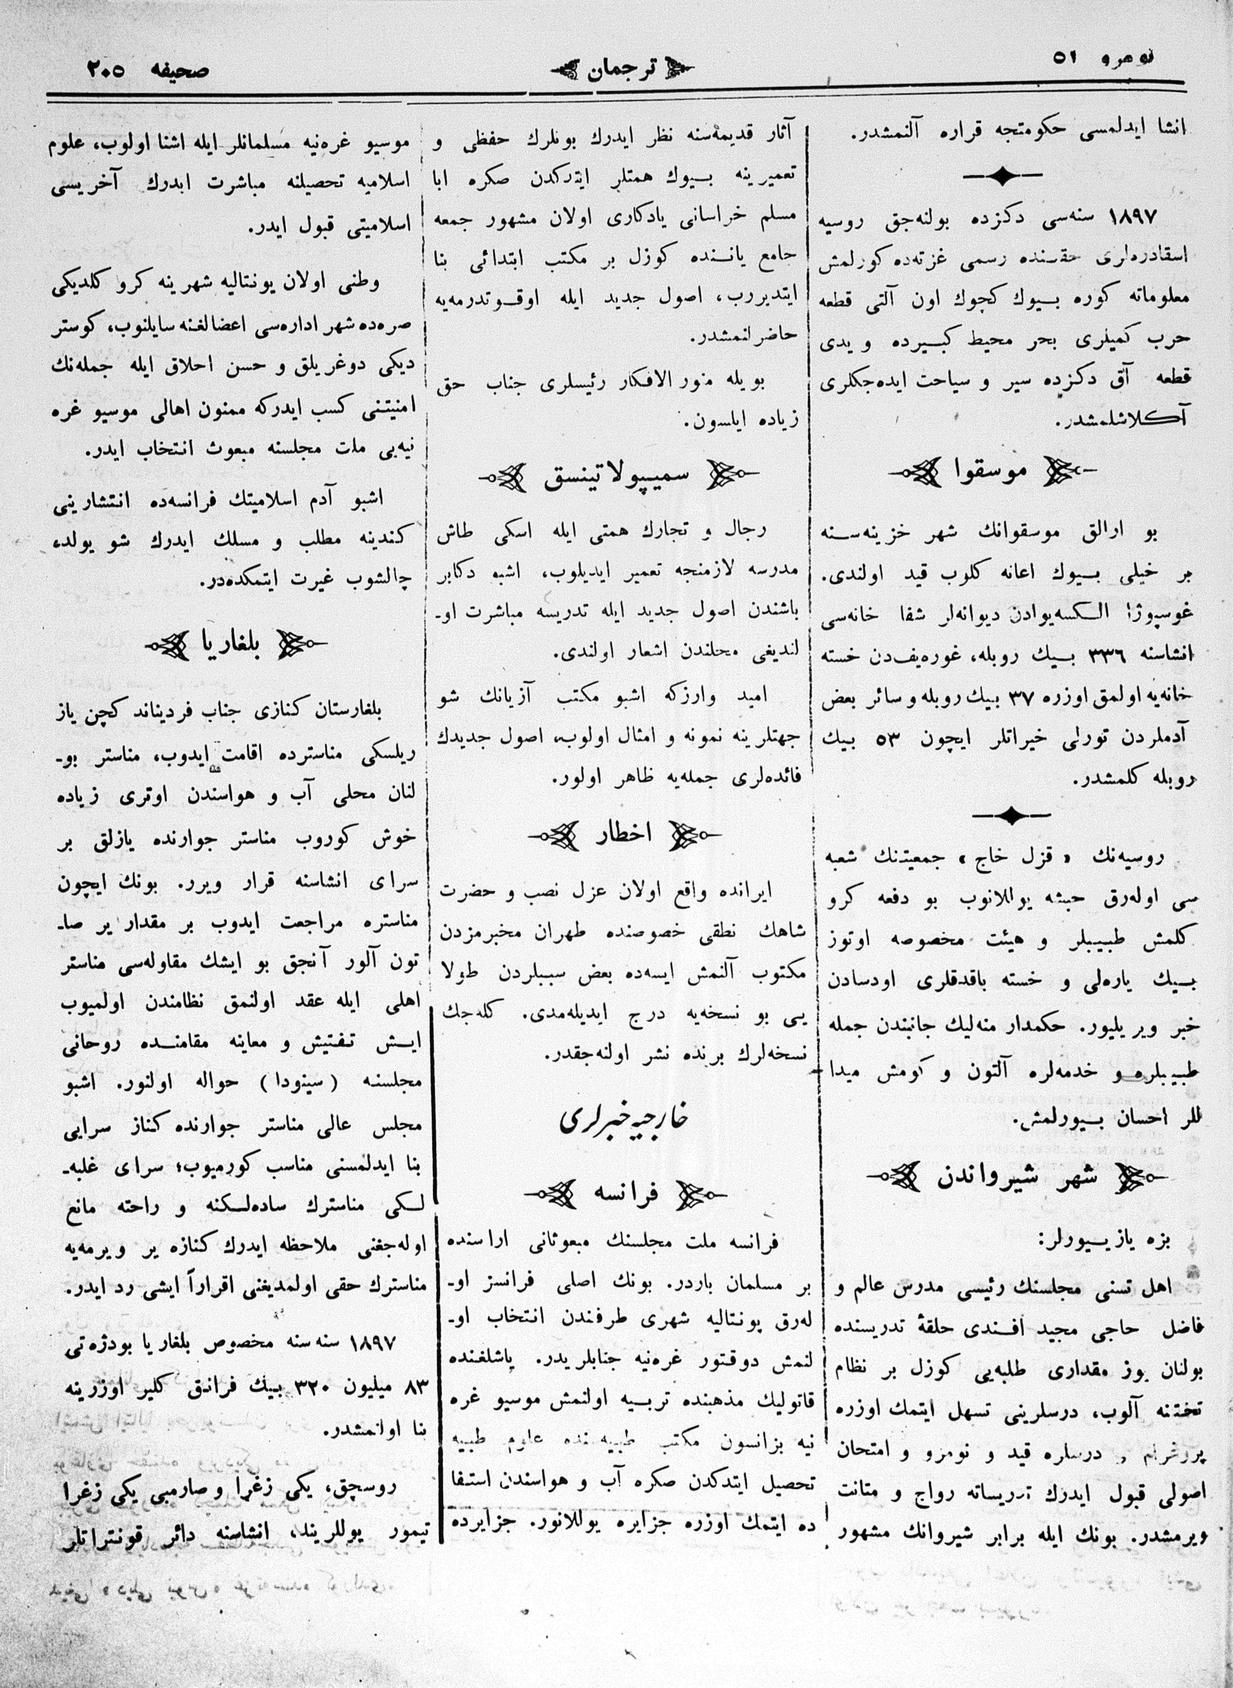 نومرو ٥١
ترجمان
صحيفه ٢٠٥
انشا ايدلمسى حكومتجه قراره آلنمشدر.
١٨٩٧ سنه‌سى دكزده بولنه‌جق روسيه
اسقادره‌لرى حقنده رسمى غزته‌ده كورلمش
معلوماته كوره بيوك كچوك اون آلتى قطعه
حرب كميلرى بحر محيط كبيرده و يدى
قطعه آق دكزده سير و سياحت ايده‌جكلرى
آكلاشلمشدر.
موسقوا
بو ارالق موسقوانك شهر خزينه‌سنه
بر خيلى بيوك اعانه كلوب قيد اولندى.
غوسپوژا الكسه‌يوادن ديوانه‌لر شفا خانه‌سى
انشاسنه ٣٣٦ بيك روبله، غوريف‌دن خسته
خانه‌يه اولمق اوزره ٣٧ بيك روبله و سائر بعض
آدملردن تورلى خيراتلر ايچون ٥٣ بيك
روبله كلمشدر.
روسيه‌نك « قزل خاج » جمعيتنك شعبه
سى اوله‌رق حبشه يوللانوب بو دفعه كرو
كلمش طبيبلر و هيئت مخصوصه اوتوز
بيك ياره‌لى و خسته باقدقلرى اودسادن
خبر ويريليور. حكمدار منه‌ليك جانبندن جمله
طبيبلره و خدمه‌لره آلتون و كومش ميدا
للر احسان بيورلمش.
شهر شيرواندن
بزه يازيبورلر:
اهل تسنى مجلسنك رئيسى مدرس عالم و
فاضل حاجى مجيد افندى حلقهٔ تدريسنده
بولنان يوز مقدارى طلبه‌يى كوزل بر نظام
تختنه آلوب، درسلرينى تسهل ايتمك اوزره
پروغرام و درسلره قيد و نومرو و امتحان
اصولى قبول ايدرك تدريساته رواج و متانت
ويرمشدر. بونك ايله برابر شيروانك مشهور
آثار قديمه‌سنه نظر ايدرك بونلرك حفظى و
تعميرينه بيوك همتلر ايتدكدن صكره ابا
مسلم خراسانى يادكارى اولان مشهور جمعه
جامع ياننده كوزل بر مكتب ابتدائى بنا
ايتديررب، اصول جديد ايله اوقوتدرمه‌يه
حاضرلنمشدر.
بويله منور الافكار رئيسلرى جناب حق
زياده ايلسون.
سميپولاتينسق
رجال و تجارك همتى ايله اسكى طاش
مدرسه لازمنجه تعمير ايديلوب، اشبو دكابر
باشندن اصول جديد ايله تدريسه مباشرت او-
لنديغى محلندن اشعار اولندى.
اميد واركه اشبو مكتب آزيانك شو
جهتلرينه نمونه و امثال اولوب، اصول جديدك
فائده‌لرى جمله‌يه ظاهر اولور.
اخطار
ايرانده واقع اولان عزل نصب و حضرت
شاهك نطقى خصوصنده طهران مخبرمزدن
مكتوب آلنمش ايسه‌ده بعض سببلردن طولا
يى بو نسخه‌يه درج ايديله‌مدى. كله‌جك
نسخه‌لرك برنده نشر اولنه‌جقدر.
خارجيه خبرلرى
فرانسه
فرانسه ملت مجلسنك مبعوثانى اراسنده
بر مسلمان باردر. بونك اصلى فرانسز او-
له‌رق پونتاليه شهرى طرفندن انتخاب او-
لنمش دوقتور غره‌نيه جنابلريدر. پاشلغنده
قاتوليك مذهبنده تربيه اولنمش موسيو غره
نيه بزانسون مكتب طبيه‌نده علوم طبيه
تحصيل ايتدكدن صكره آب و هواسندن استفا
ده ايتمك اوزره جزايره يوللانور. جزايرده
موسيو غره‌نيه مسلمانلر ايله اشنا اولوب، علوم
اسلاميه تحصيلنه مباشرت ايدرك آخريسى
اسلاميتى قبول ايدر.
وطنى اولان پونتاليه شهرينه كرو كلديكى
صره‌ده شهر اداره‌سى اعضالغنه سايلنوب، كوستر
ديكى دوغريلق و حسن اخلاق ايله جمله‌نك
امنيتنى كسب ايدركه ممنون اهالى موسيو غره
نيه‌يى ملت مجلسنه مبعوث انتخاب ايدر.
اشبو آدم اسلاميتك فرانسه‌ده انتشارينى
كندينه مطلب و مسلك ايدرك شو يولده
چالشوب غيرت ايتمكده‌در.
بلغاريا
بلغارستان كنازى جناب فرديناند كچن ياز
ريلسكى مناسترده اقامت ايدوب، مناستر بو-
لنان محلى آب و هواسندن اوترى زياده
خوش كوروب مناستر جوارنده يازلق بر
سراى انشاسنه قرار ويرر. بونك ايچون
مناستره مراجعت ايدوب بر مقدار ير صا-
تون آلور آنجق بو ايشك مقاوله‌سى مناستر
اهلى ايله عقد اولنمق نظامندن اولميوب
ايش تفتيش و معاينه مقامنده روحانى
مجلسنه (سينودا) حواله اولنور. اشبو
مجلس عالى مناستر جوارنده كناز سرايى
بنا ايدلمسنى مناسب كورميوب؛ سراى غلبه-
لكى مناسترك ساده‌لكنه و راحته مانع
اوله‌جغنى ملاحظه ايدرك كنازه ير ويرمه‌يه
مناسترك حقى اولمديغنى اقراراً ايشى رد ايدر.
١٨٩٧ سنه سنه مخصوص بلغاريا بودژه‌تى
٨٣ ميليون ٣٢٠ بيك فرانق كلير اوزرينه
بنا اولنمشدر.
روسچق، يكى زغرا و صارمبى يكى زغرا
تيمور يوللريند، انشاسنه دائر قونتراتلر